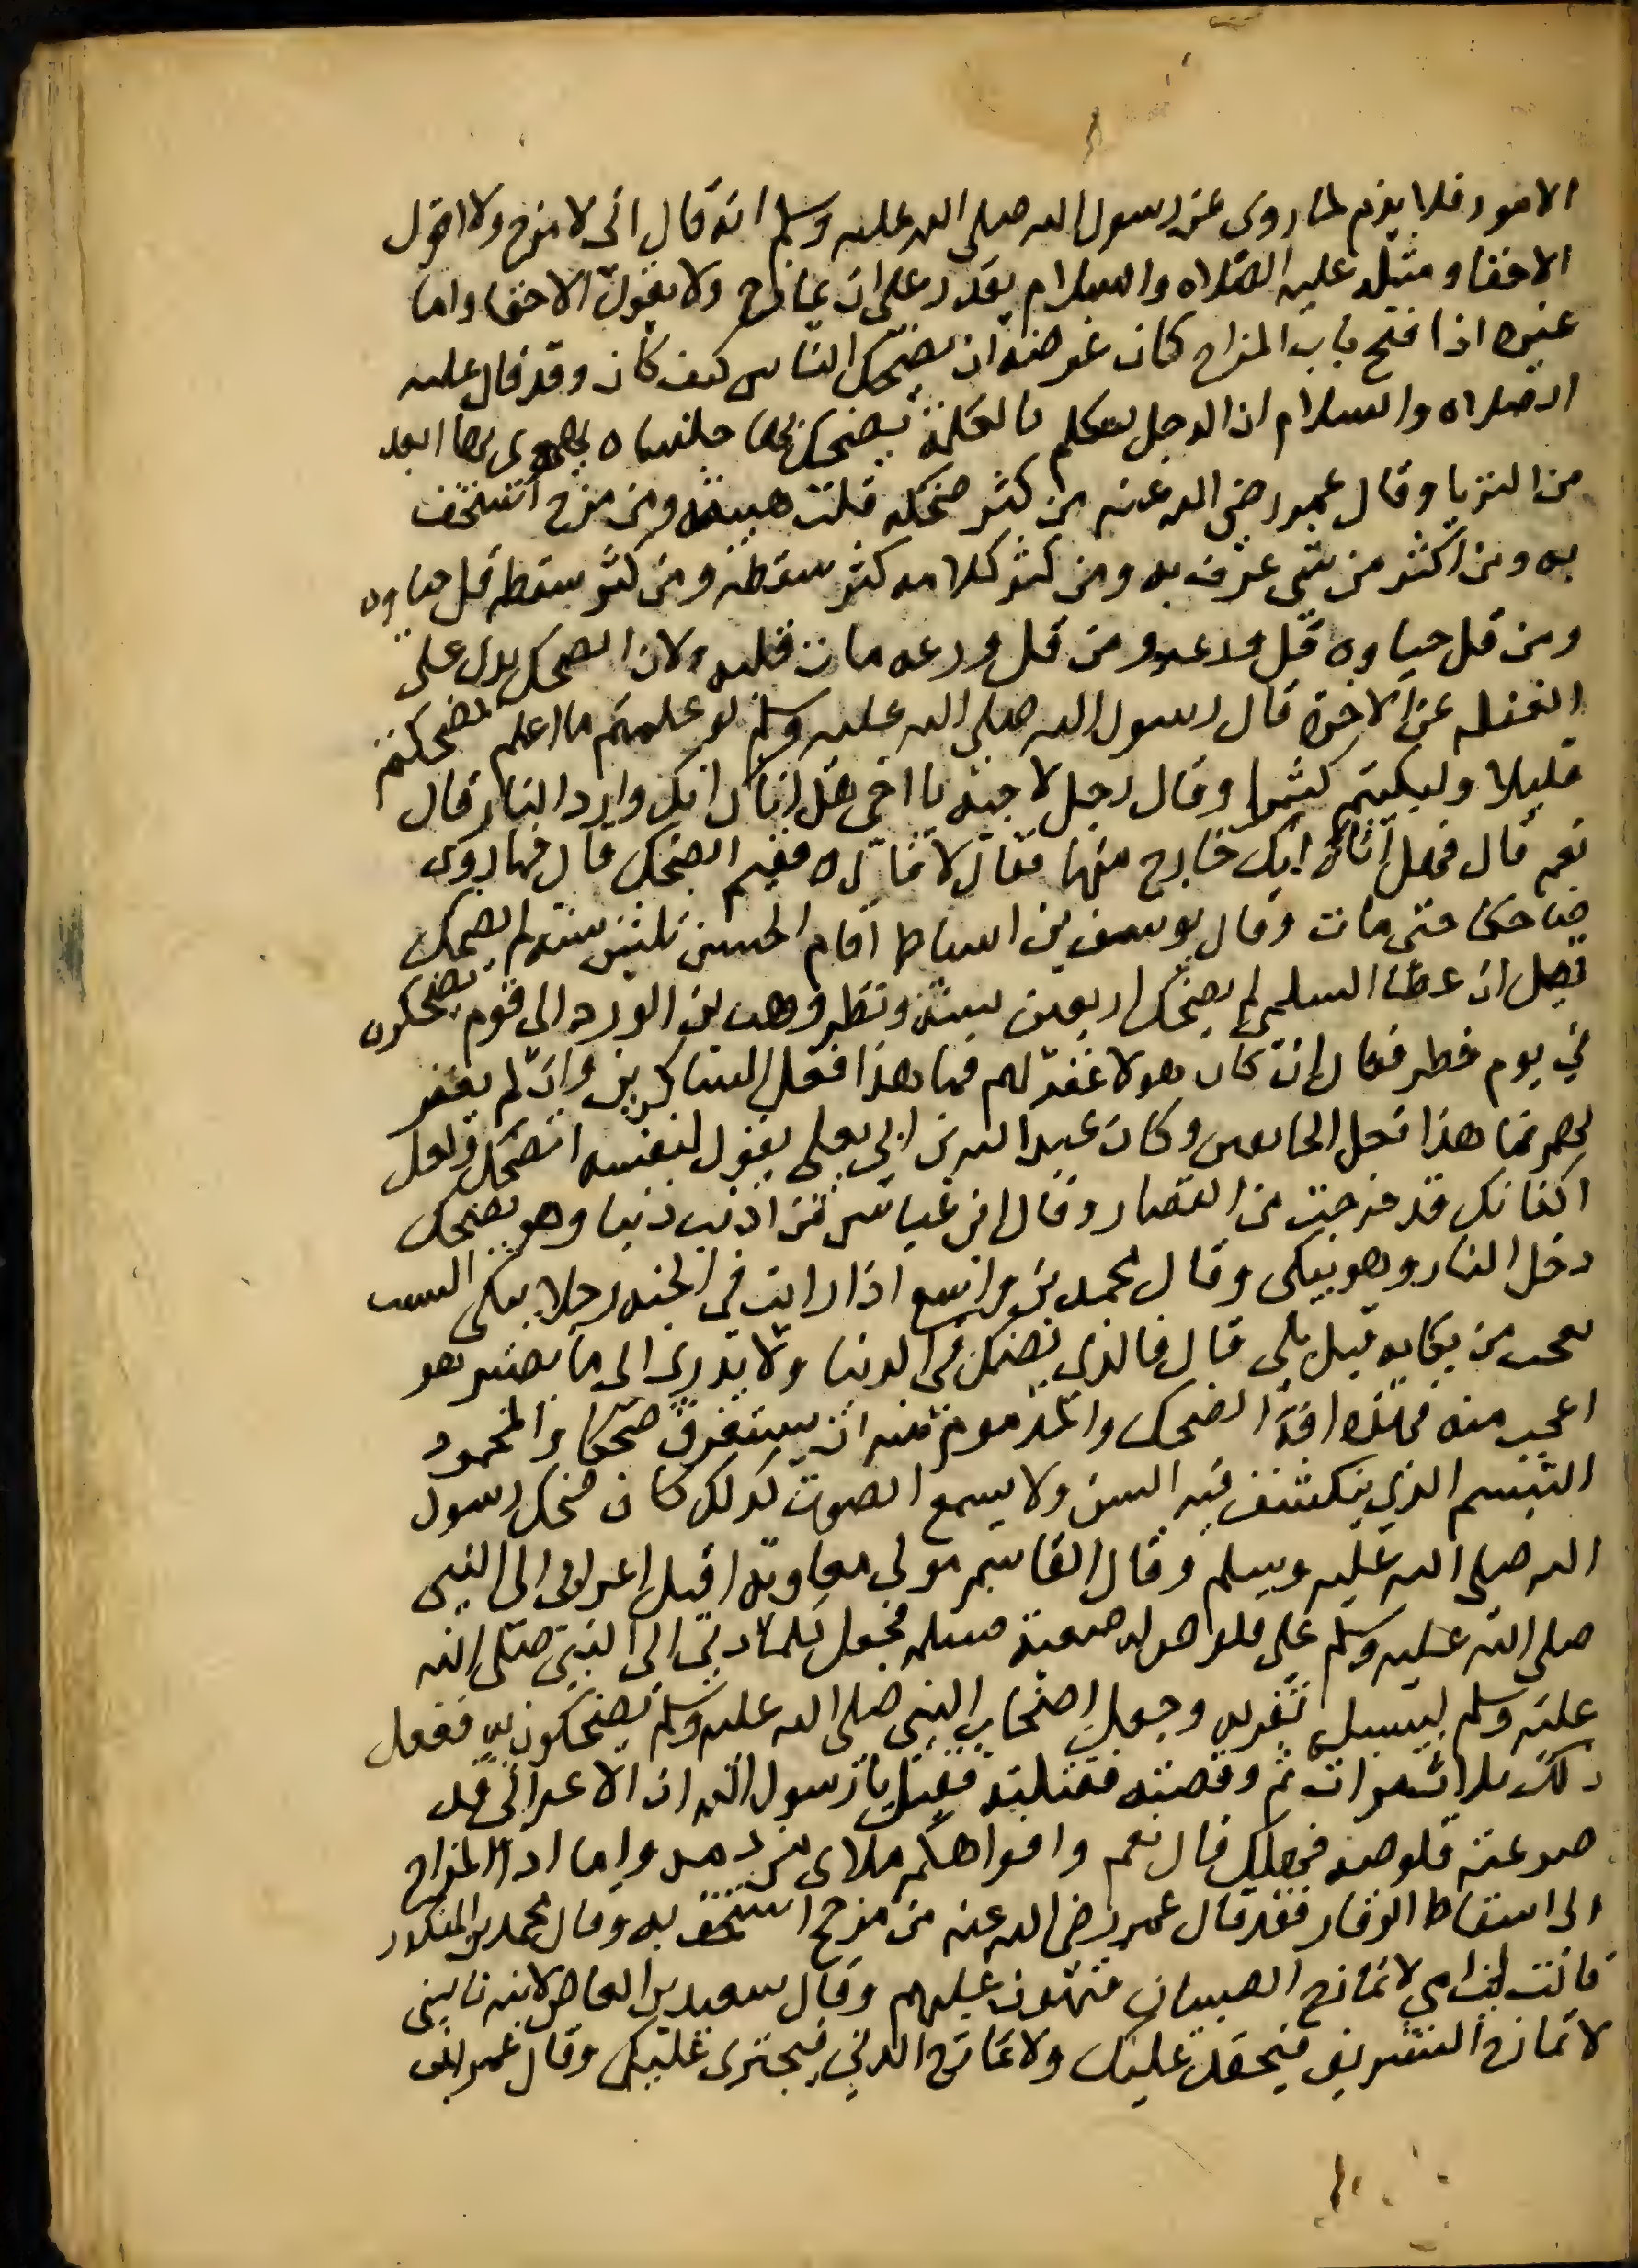 الامور فلا يذم لما روى عن رسول الله صلى الله عليه وسلم انه قال انى لامزح ولا اقول
الا حقا و مثله عليه الصلاه والسلام يقدر على ان يمازح ولا يقول الا حقا واما
غيره اذا فتح باب المزاح كان غرضه ان يضحك الناس كيف كان وقد قال عليه
الصلاه والسلام ان الرجل ليتكلم بالكلمة يضحك بها جلساه يهوى بها ابعد
من الثريا وقال عمر رضى الله عنه من كثر ضحكه قلت هيبته ومن مزح استخف
به ومن اكثر من شى عرف به ومن كثر كلامه كثر سقطه ومن كثر سقطه قل حياوه
ومن قل حياوه قل ورعه ومن قل ورعه مات قلبه ولان الضحك يدل على
الغفله عن الاخرة قال رسول الله صلى الله عليه وسلم لو علمتم ما اعلم لضحكتم
قليلا ولبكيتم كثيرا وقال رجل لاخيه يا اخى هل اتاك انك وارد النار قال
نعم قال فهل اتاك انك خارج منها فقال لا قال ففيم الضحك قال فما روى
ضاحكا حتى مات وقال يوسف بن اسباط اقام الحسن ثلثين سنه لم يضحك
قيل ان عطا السلمى لم يضحك اربعين سنة ونظر وهب بن الورد الى قوم يضحكون
في يوم فطر فقال ان كان هولا غفر لهم فما هذا فعل الشاكرين وان لم يغفر
لهم فما هذا فعل الخايفين وكان عبد الله بن ابي يعلى يقول لنفسه اتضحك ولعل
اكفانك قد خرجت من القصار وقال ابن عباس من اذنب ذنبا وهو يضحك
دخل النار وهو يبكى وقال محمد بن واسع اذا رايت في الجنه رجلا يبكى الست
تعجب من بكايه قيل بلى قال فالذي يضحك في الدنيا ولا يدرى الى ما يصير هو
اعجب منه فهذه افة الضحك والمذموم منه ان يستغرق ضحكا والمحمود
التبسم الذي ينكشف فيه السن ولا يسمع الصوت كذلك كان ضحك رسول
الله صلى الله عليه وسلم وقال القاسم مولى معاوية اقبل اعرابى الى النبى
صلى الله عليه وسلم على قلوص له صعبة فسلم فجعل كلما دنى الى النبى صلى الله
عليه وسلم ليسيل تفر به وجعل اصحاب النبى صلى الله عليه وسلم يضحكون به ففعل
ذلك ثلاث مرات ثم وقصته فقتلته فقيل يا رسول الله ان الاعرابى قد
صرعته قلوصه فهلك قال نعم وافواهكم ملاى من دمه واما اذا المزاح
الى اسقاط الوقار فقد قال عمر رضى الله عنه من مزح استخف به وقال محمد بن المنكدر
قالت لى امى لا تمازح الصبيان فتهون عليهم وقال سعيد بن العاص لابنه يا بنى
لا تمازح الشريف فيحقد عليك ولا تمازح الدنى فيجترى عليك وقال عمر بن